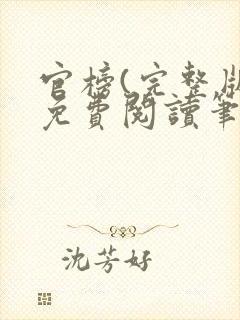 官榜(完整版
免費閱讀筆
沈芳好